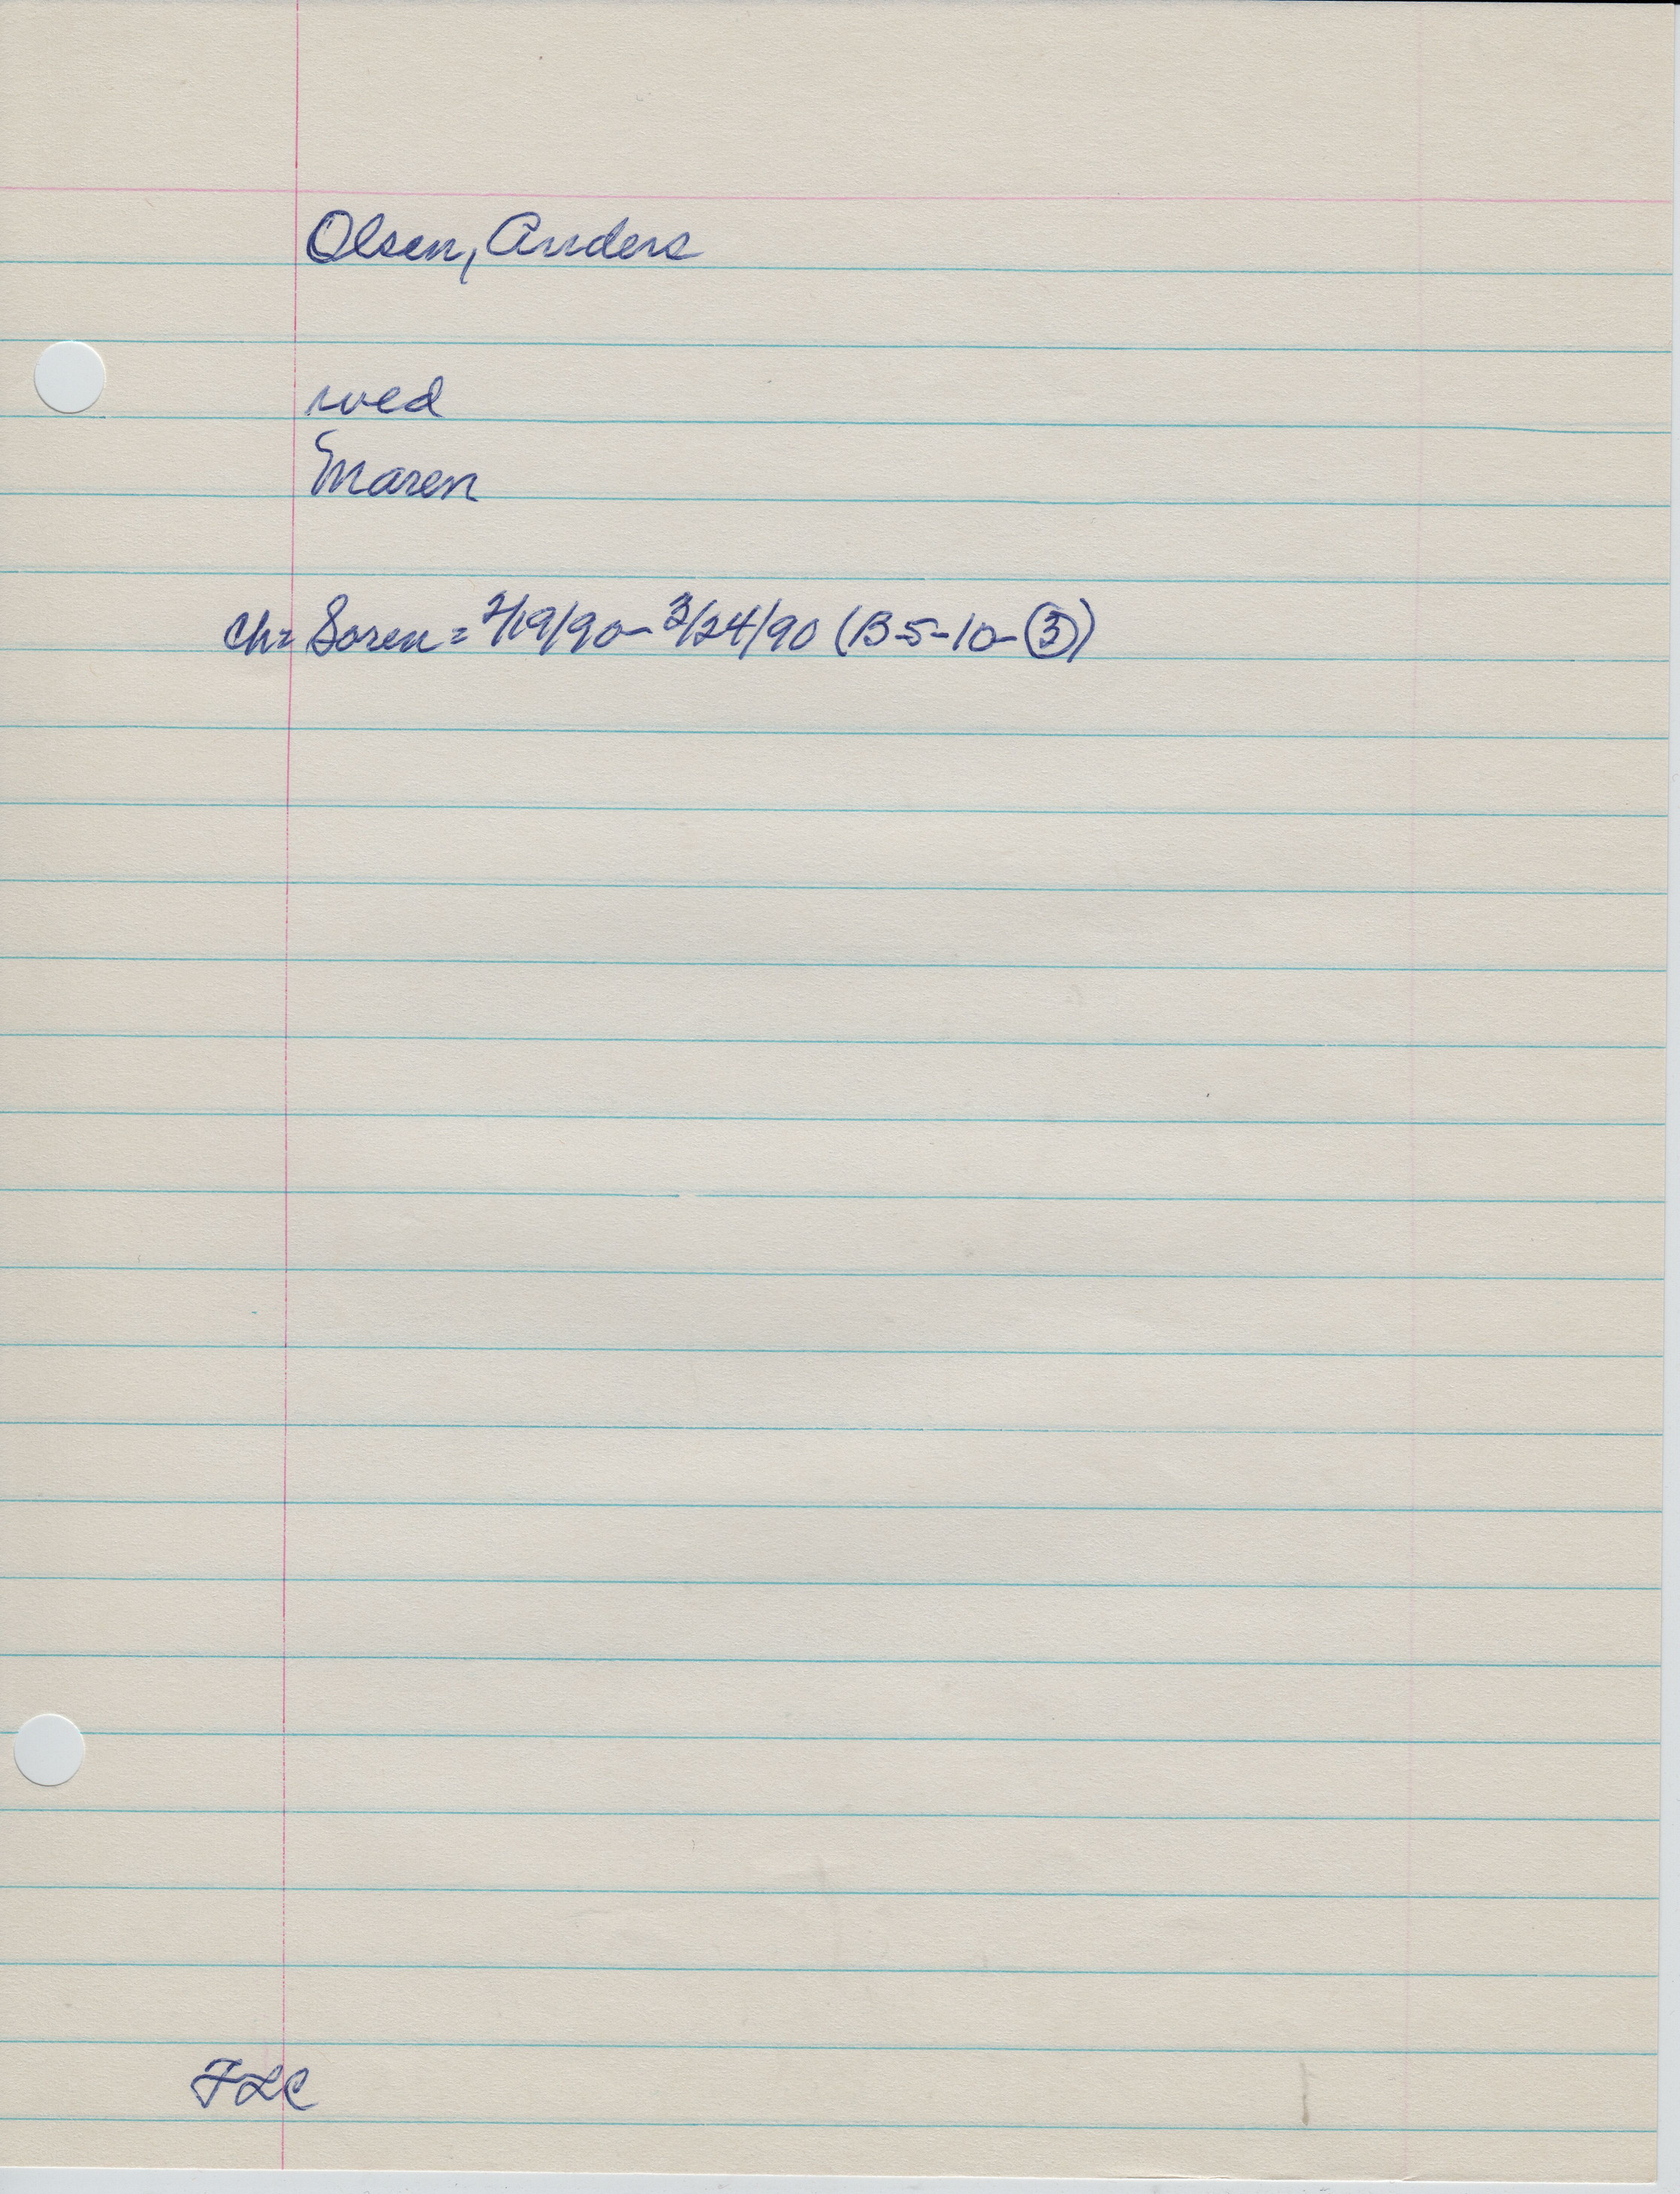 Olsen, Anders
wed
Maren
ch= Soren = 2/19/90 - 3/24/90 (B-5-10-③)
FLC